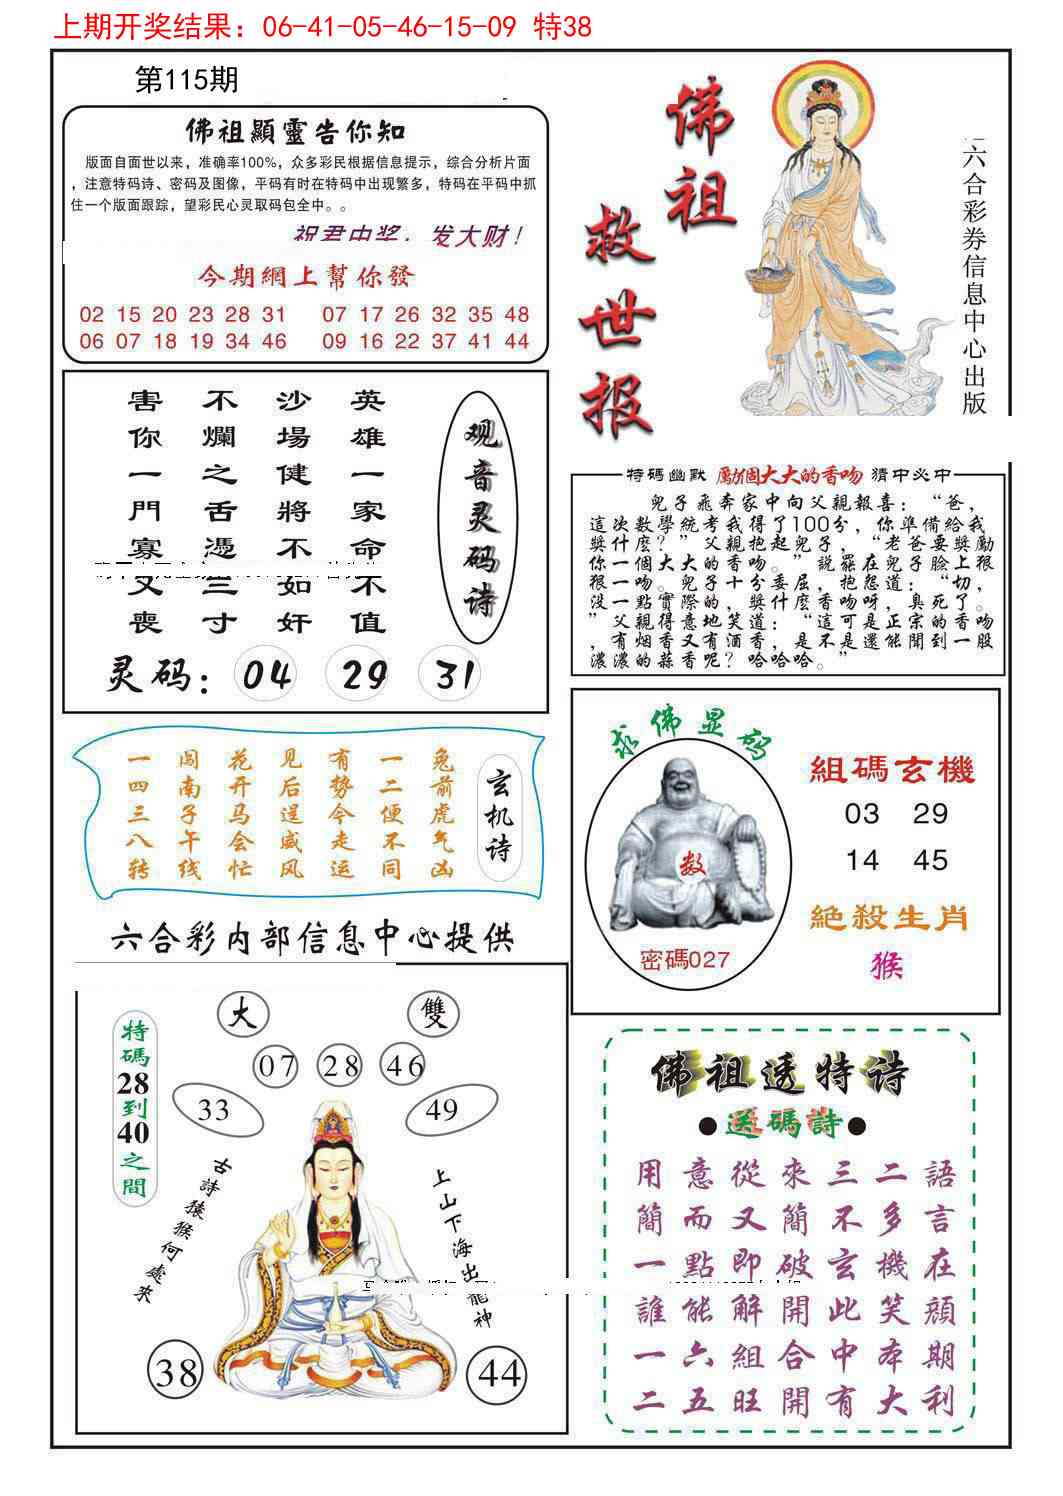 上期开奖结果：06-41-05-46-15-09 特38
第115期
佛祖顯靈告你知
版面自面世以来，准确率100%，众多彩民根据信息提示，综合分析片面
，注意特码诗、密码及图像，平码有时在特码中出现繁多，特码在平码中抓
住一个版面跟踪，望彩民心灵取码包全中。。
祝君中奖；发大财！
今期網上幫你發
02 15 20 23 28 31 07 17 26 32 35 48
06 07 18 19 34 46 09 16 22 37 41 44
佛祖
救世报
六合彩券信息中心出版
观音灵码诗
英雄一家命不值
沙場健將不如奸
不爛之舌憑三寸
害你一門寡又喪
灵码：04 29 31
特碼幽默 勵個大大的香吻 猜中必中
兒子飛奔家中向父親報喜：“爸，
這次數學統考我得了100分，你準備給我
獎什麼？”父親抱起兒子，“老爸要獎勵
你一個大大的香吻。”說罷在兒子臉上狠
狠一吻。兒子十分委屈，抱怨道：“切，
没一點實際的，獎什麼香吻呀，臭死了。
”父親得意地笑道：“這可是正宗的香吻
，有烟香又有酒香，是不是還能聞到一股
濃濃的蒜香呢？哈哈哈。”
玄机诗
兔前虎气凶
一二便不同
有势今走运
见后逞威风
花开马会忙
闯南子午线
一四三八转
求佛显码
数
密碼027
組碼玄機
03 29
14 45
絕殺生肖
猴
六合彩内部信息中心提供
大
雙
07 28 46
33
49
特碼28到40之間
古詩猿猴何處來
上山下海出龍神
38
44
佛祖透特诗
●送碼詩●
用意從來三二語
簡而又簡不多言
一點即破玄機在
誰能解開此笑顔
一六組合中本期
二五旺開有大利